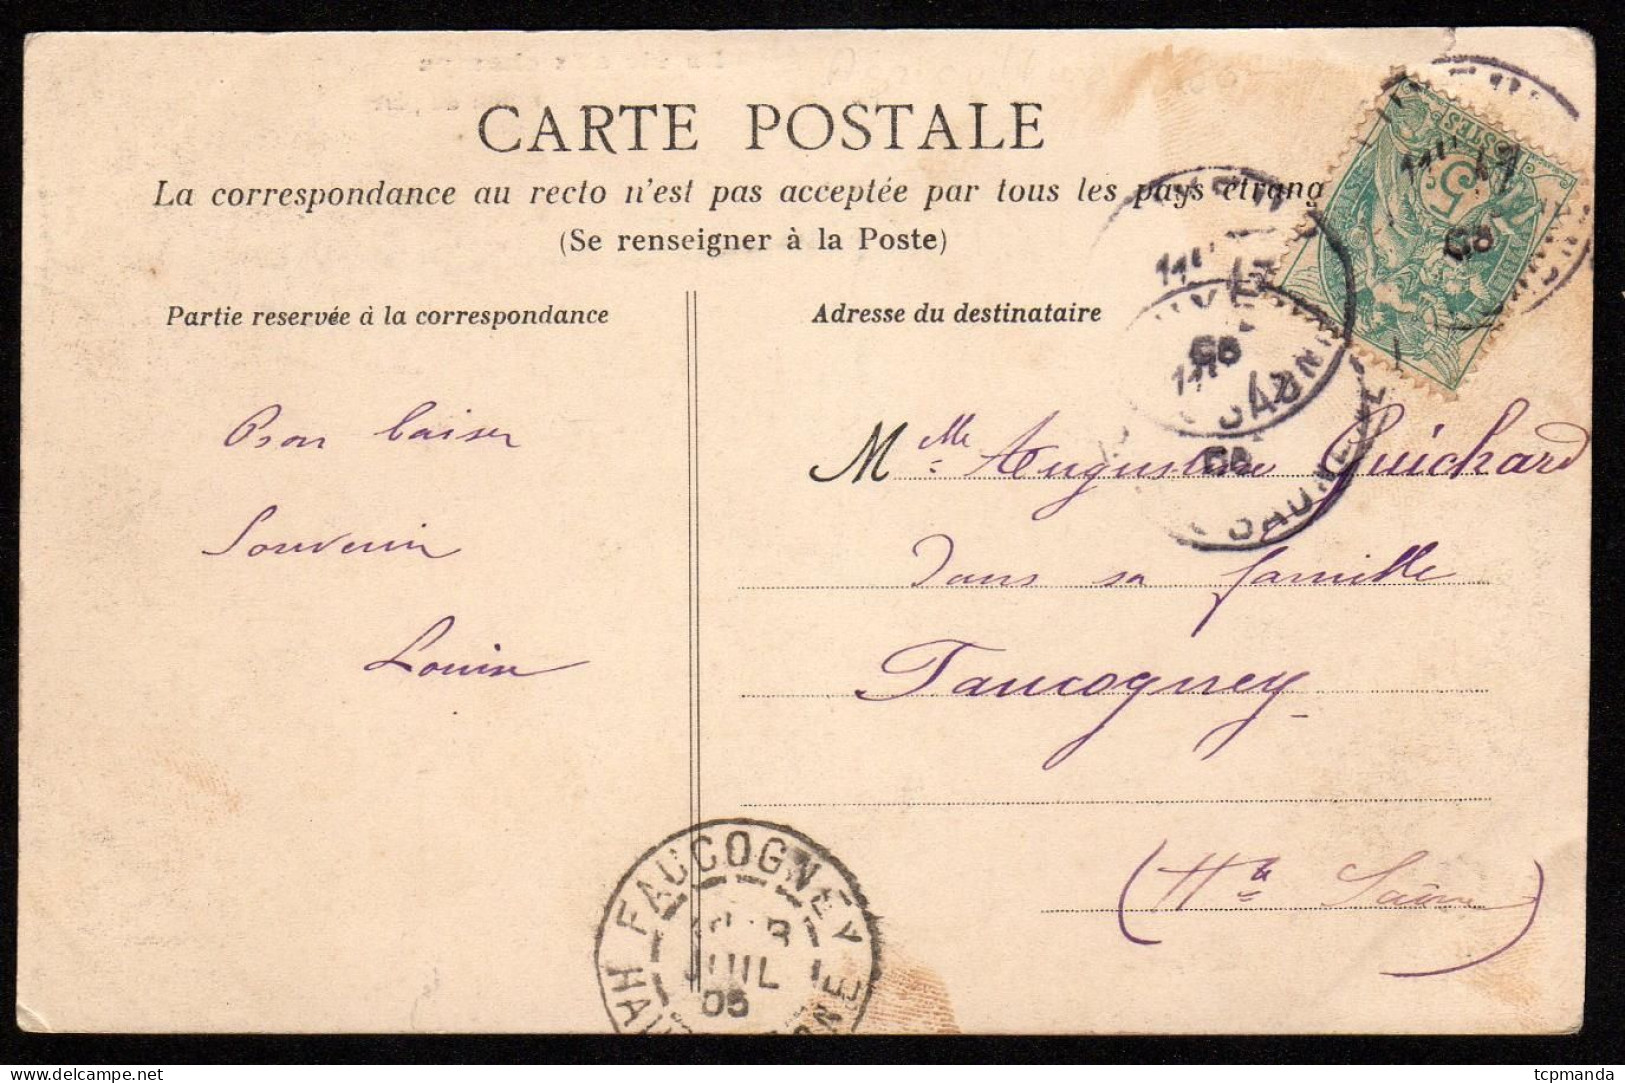 CARTE POSTALE
La correspondance au recto n'est pas acceptée par tous les pays étrang
(Se renseigner à la Poste)
Partie reservée à la correspondance
Adresse du destinataire
Bon baiser
Souvenir
Louise
Mlle Augustine Guichard
Dans sa famille
Faucogney
(Hte Saône)
FAUCOGNEY
JUIL
05
HAU ONE
SAONE
SAONE
5
tcpmanda